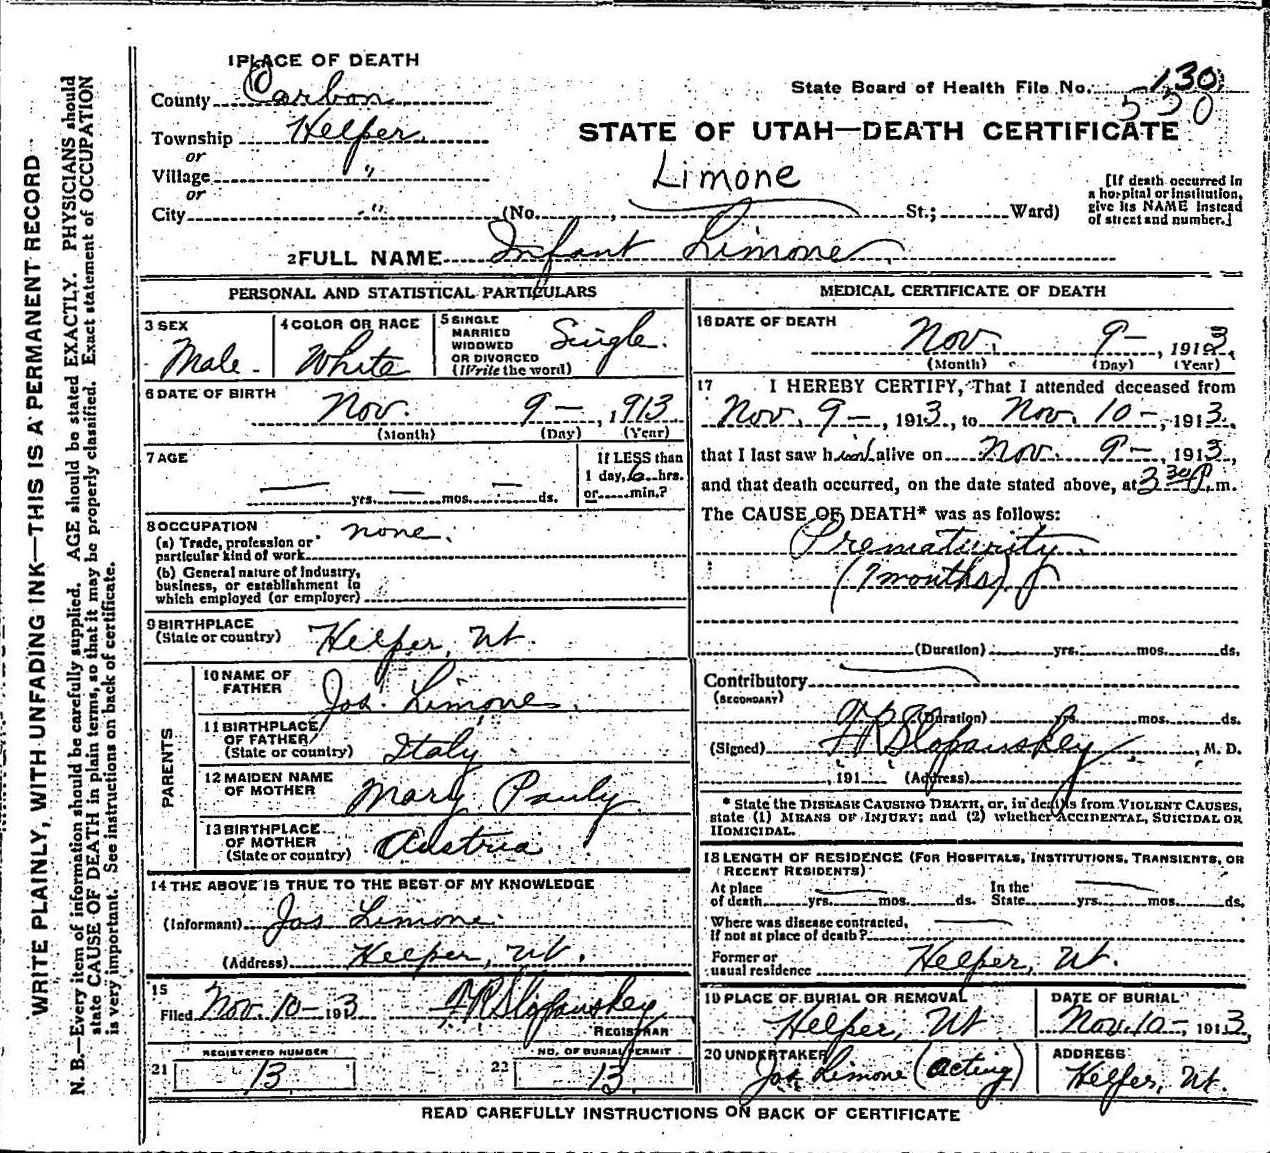 WRITE PLAINLY, WITH UNFADING INK—THIS IS A PERMANENT RECORD
N. B.—Every item of information should be carefully supplied. AGE should be stated EXACTLY. PHYSICIANS should
state CAUSE OF DEATH in plain terms, so that it may be properly classified. Exact statement of OCCUPATION
is very important. See instructions on back of certificate.
1 PLACE OF DEATH
County Carbon
Township Helper
or
Village "
or
City "
State Board of Health File No. 130
530
STATE OF UTAH—DEATH CERTIFICATE
Limone
(No. , St.; Ward)
[If death occurred in
a hospital or institution,
give its NAME instead
of street and number.]
2 FULL NAME Infant Limone
PERSONAL AND STATISTICAL PARTICULARS
3 SEX
Male
4 COLOR OR RACE
White
5 SINGLE
MARRIED
WIDOWED
OR DIVORCED
(Write the word)
Single.
6 DATE OF BIRTH
Nov. 9 — , 1913
(Month) (Day) (Year)
7 AGE
— yrs. — mos. — ds.
If LESS than
1 day, 6 hrs.
or min.?
8 OCCUPATION
(a) Trade, profession or
particular kind of work
none.
(b) General nature of industry,
business, or establishment in
which employed (or employer)
9 BIRTHPLACE
(State or country)
Helper, Ut.
PARENTS
10 NAME OF
FATHER
Jos. Limone
11 BIRTHPLACE
OF FATHER
(State or country)
Italy
12 MAIDEN NAME
OF MOTHER
Mary Pauly
13 BIRTHPLACE
OF MOTHER
(State or country)
Austria
14 THE ABOVE IS TRUE TO THE BEST OF MY KNOWLEDGE
(Informant) Jos Limone
(Address) Helper, Ut.
15
Filed Nov. 10 - 1913 F R Slopanskey
REGISTRAR
21
REGISTERED NUMBER
13
22
NO. OF BURIAL PERMIT
13
MEDICAL CERTIFICATE OF DEATH
16 DATE OF DEATH
Nov. 9 — , 1913,
(Month) (Day) (Year)
17 I HEREBY CERTIFY, That I attended deceased from
Nov. 9 — , 1913, to Nov. 10 — , 1913,
that I last saw him alive on Nov. 9 — , 1913,
and that death occurred, on the date stated above, at 3 30 P. m.
The CAUSE OF DEATH* was as follows:
Prematurity
(7 months)
(Duration) yrs. mos. ds.
Contributory
(SECONDARY)
(Duration) yrs. mos. ds.
(Signed) F R Slopanskey, M. D.
, 191 (Address)
* State the DISEASE CAUSING DEATH, or, in deaths from VIOLENT CAUSES,
state (1) MEANS OF INJURY; and (2) whether ACCIDENTAL, SUICIDAL OR
HOMICIDAL.
18 LENGTH OF RESIDENCE (FOR HOSPITALS, INSTITUTIONS, TRANSIENTS, OR
RECENT RESIDENTS)
At place
of death yrs. mos. ds.
In the
State yrs. mos. ds.
Where was disease contracted,
if not at place of death?
Former or
usual residence Helper, Ut.
19 PLACE OF BURIAL OR REMOVAL
Helper, Ut
DATE OF BURIAL
Nov. 10 - , 1913
20 UNDERTAKER
Jos Limone (acting)
ADDRESS
Helper, Ut.
READ CAREFULLY INSTRUCTIONS ON BACK OF CERTIFICATE